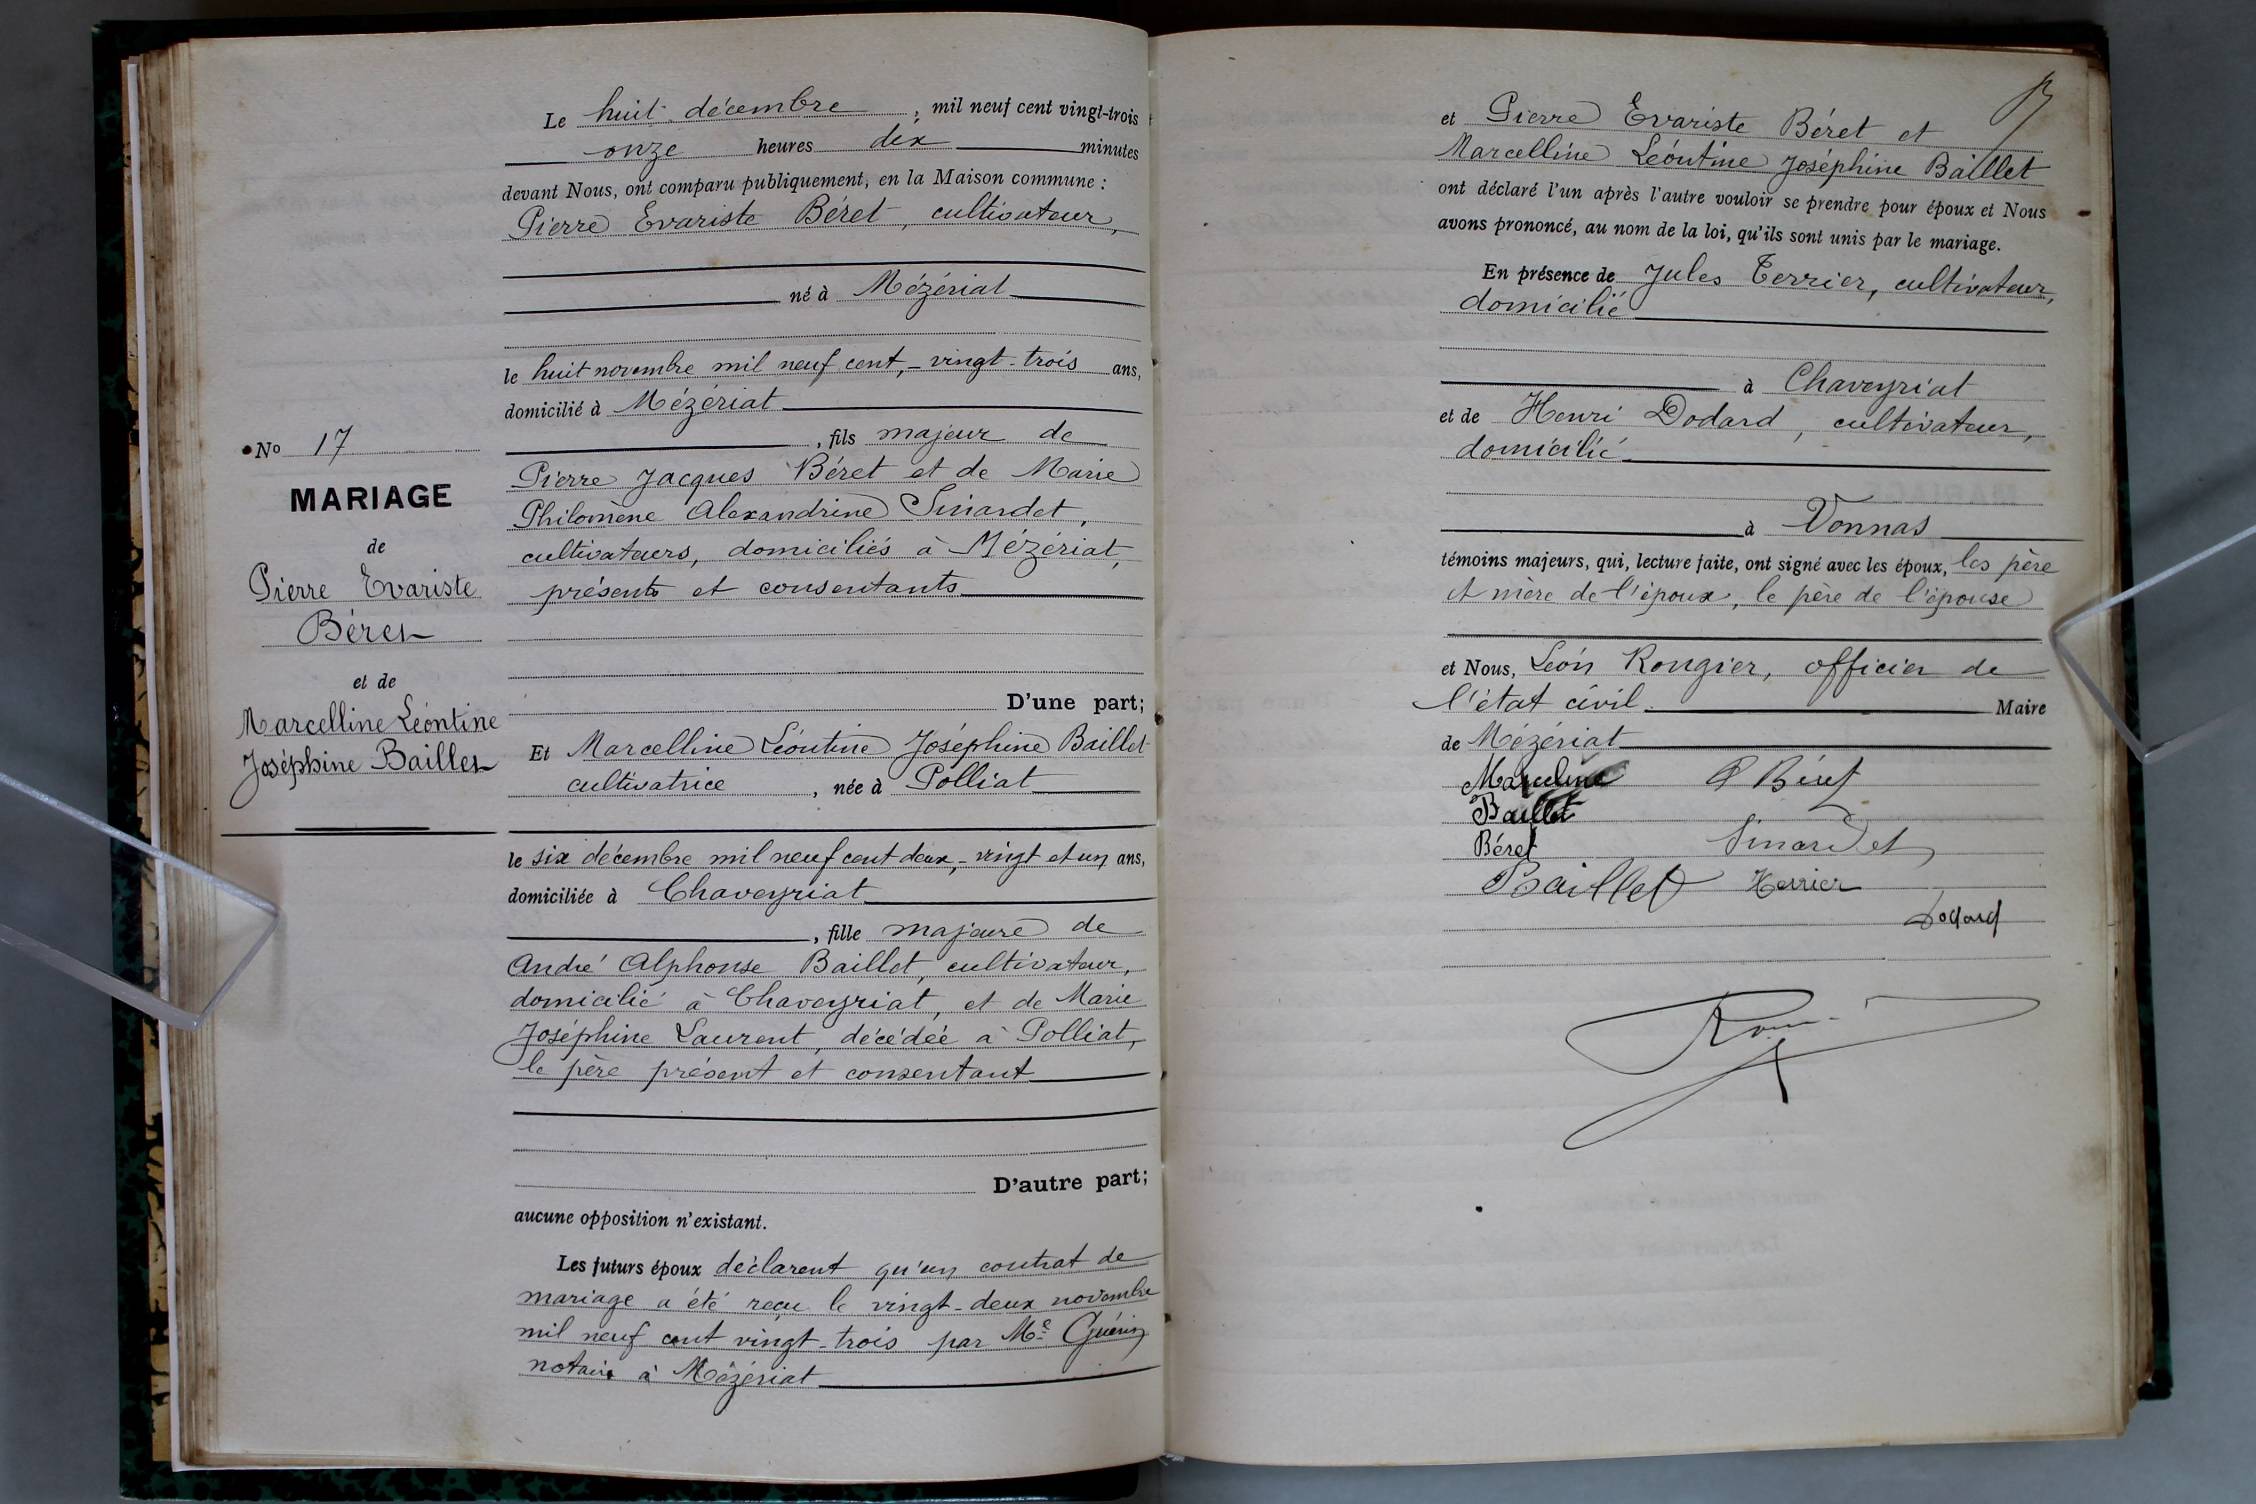 Le huit décembre, mil neuf cent vingt-trois
onze heures dix minutes
devant Nous, ont comparu publiquement, en la Maison commune :
Pierre Evariste Béret, cultivateur,
né à Mézériat
le huit novembre mil neuf cent, - vingt-trois ans,
domicilié à Mézériat
, fils majeur de
Pierre Jacques Béret et de Marie
Philomène Alexandrine Sinardet,
cultivateurs, domiciliés à Mézériat,
présents et consentants
D'une part;
Et Marcelline Léontine Joséphine Baillet
cultivatrice, née à Polliat
le six décembre mil neuf cent deux, - vingt et un ans,
domiciliée à Chaveyriat
, fille majeure de
André Alphonse Baillet, cultivateur,
domicilié à Chaveyriat, et de Marie
Joséphine Laurent, décédée à Polliat,
le père présent et consentant
D'autre part;
aucune opposition n'existant.
Les futurs époux déclarent qu'un contrat de
mariage a été reçu le vingt-deux novembre
mil neuf cent vingt-trois par Me Guérin
notaire à Mézériat
No 17
MARIAGE
de
Pierre Evariste
Béret
et de
Marcelline Léontine
Joséphine Baillet
et Pierre Evariste Béret et
Marcelline Léontine Joséphine Baillet
ont déclaré l'un après l'autre vouloir se prendre pour époux et Nous
avons prononcé, au nom de la loi, qu'ils sont unis par le mariage.
En présence de Jules Terrier, cultivateur,
domicilié
à Chaveyriat
et de Henri Dodard, cultivateur,
domicilié
à Vonnas
témoins majeurs, qui, lecture faite, ont signé avec les époux, les père
et mère de l'époux, le père de l'épouse
et Nous, Léon Rougier, officier de
l'état civil. Maire
de Mézériat
Marceline P Béret
Baillet
Béret Sinardet
Baillet Terrier
Dodard